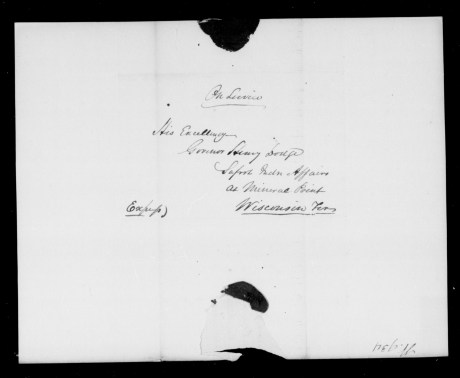 On Service
His Excellency
Governor Henry Dodge
Supt Indn Affairs
at Mineral Point
Wisconsin Ter
(Express)